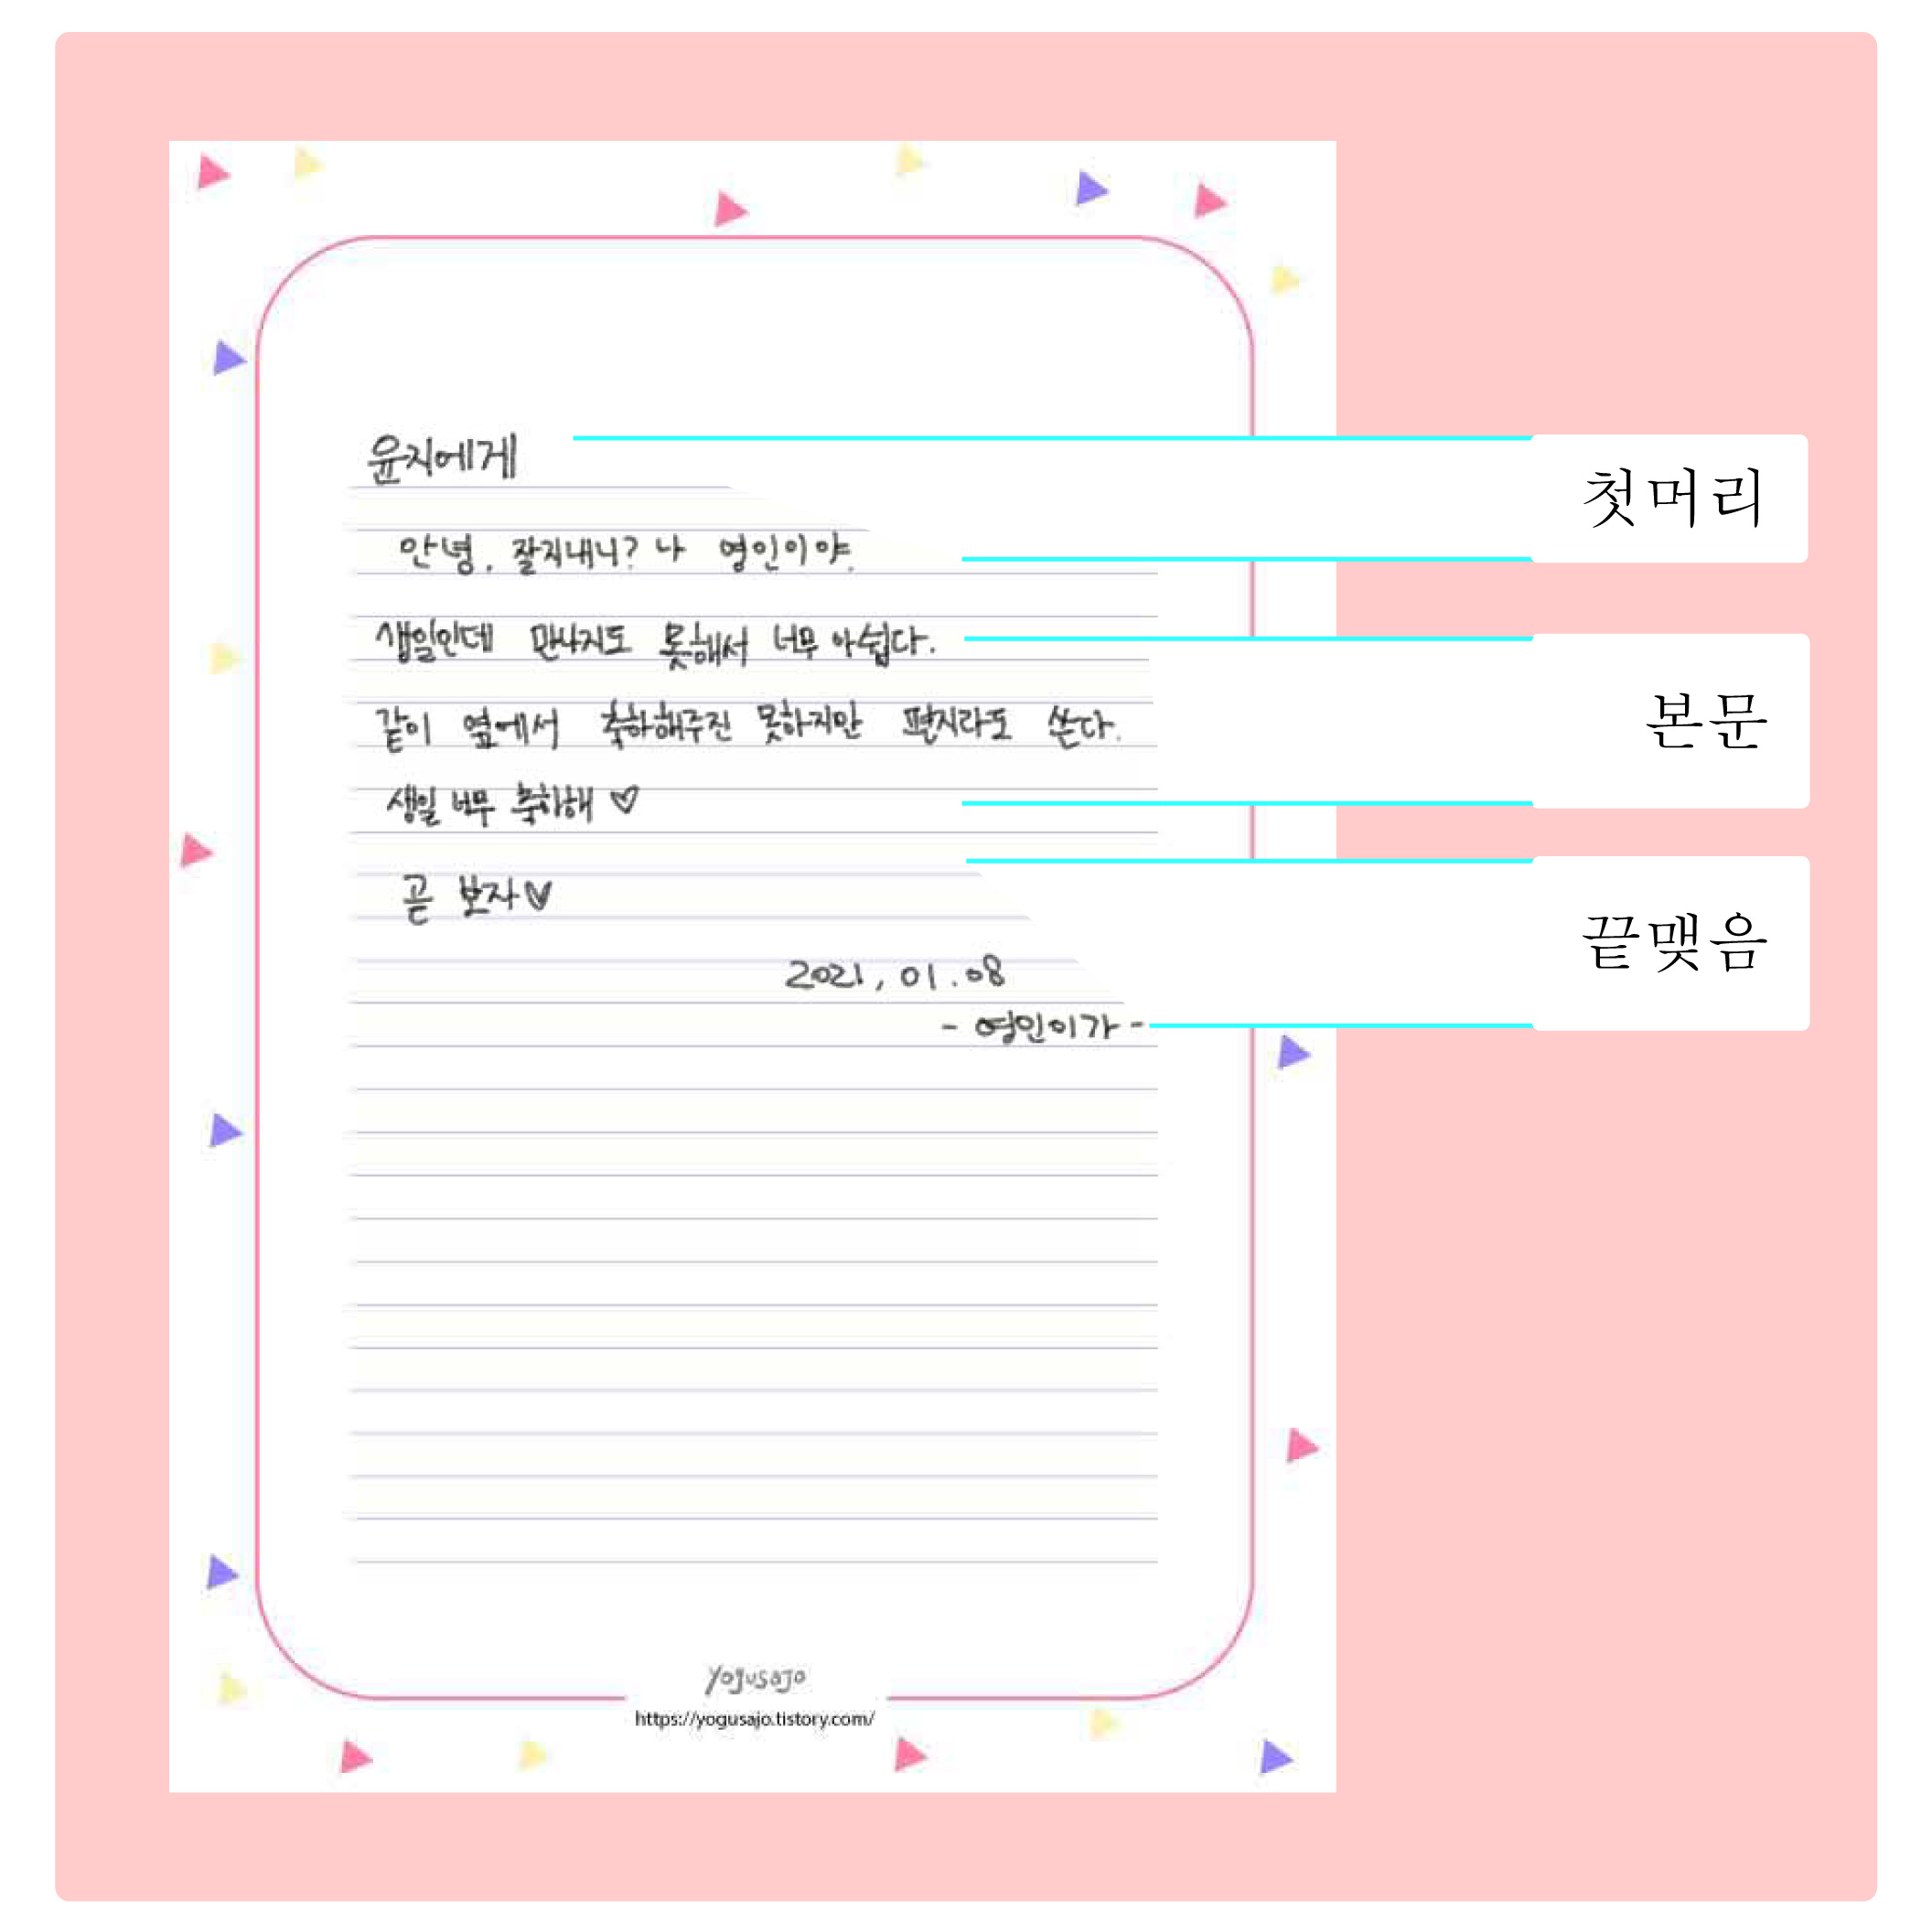 윤지에게
첫머리
안녕. 잘지내니? 나 영인이야.
생일인데 만나지도 못해서 너무 아쉽다.
본문
같이 옆에서 축하해주진 못하지만 편지라도 쓴다.
생일 너무 축하해♡
곧 보자♡
끝맺음
2021, 01.08
- 영인이가 -
yogusajo
https://yogusajo.tistory.com/